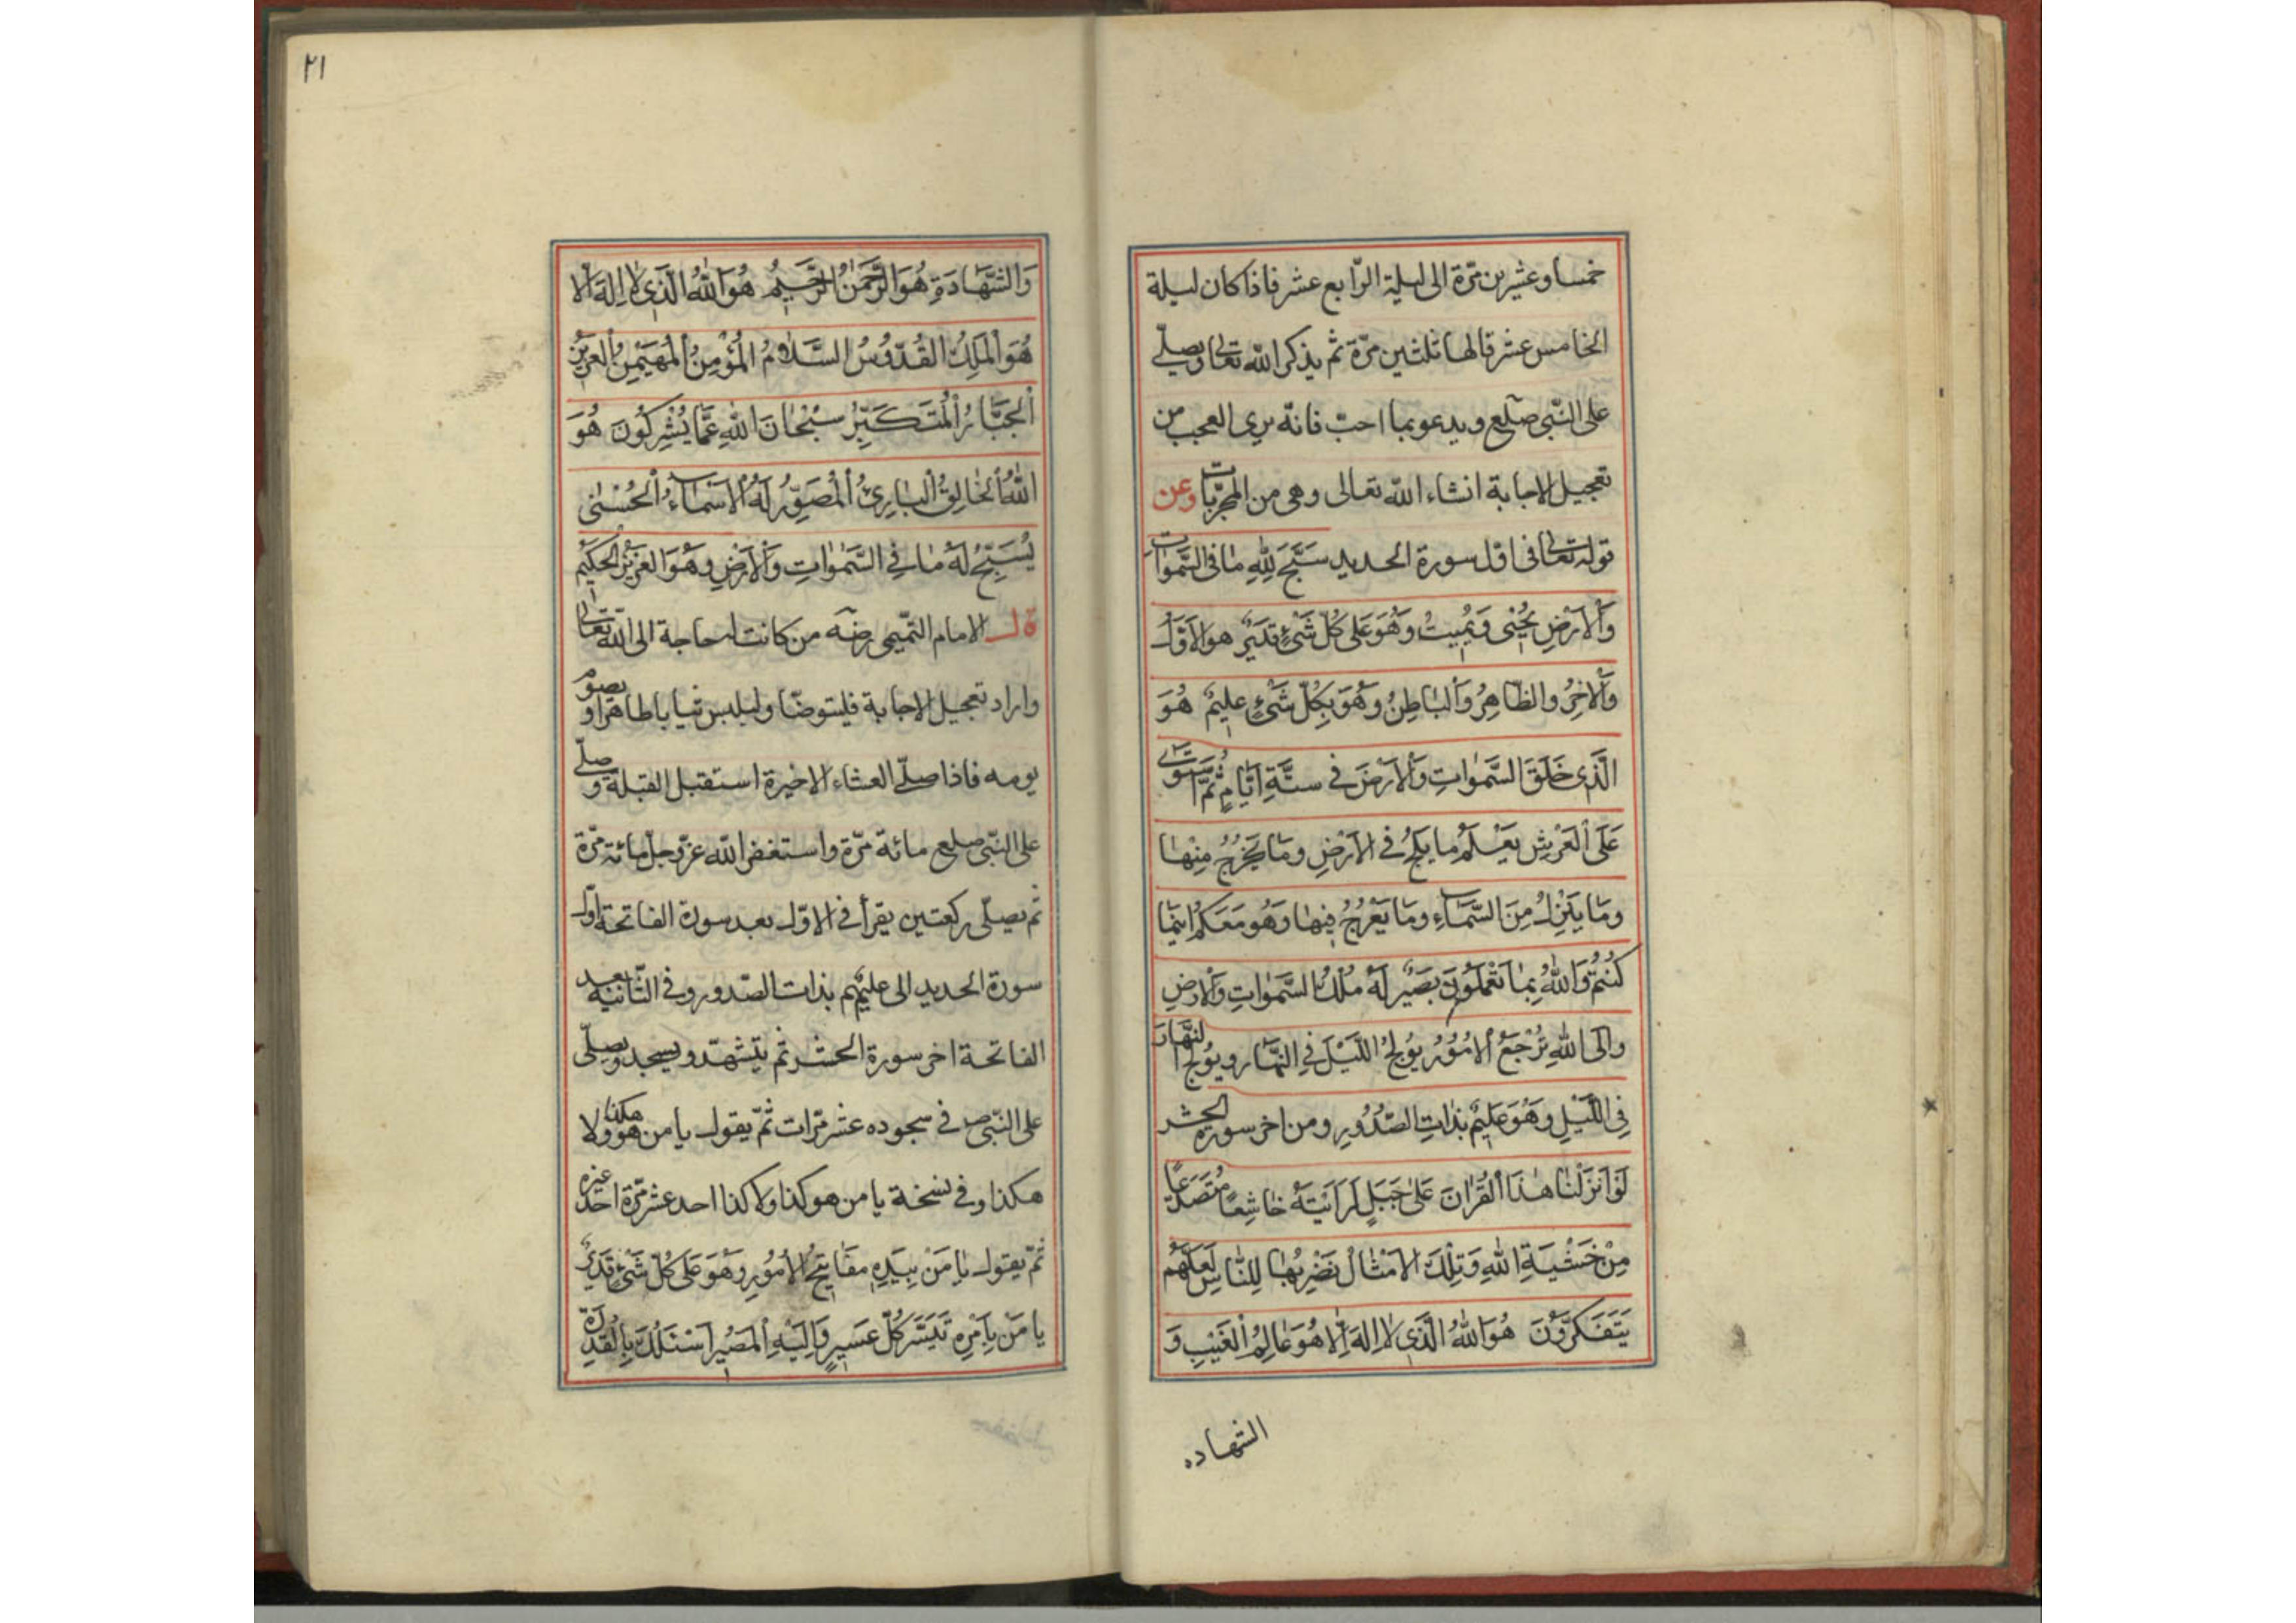 خمسا وعشرين مرّة الى ليلة الرّابع عشر فاذا كان ليلة
الخامس عشر قالها ثلثين مرّة ثم يذكر الله تعالى ويصلّے
على النّبى صلعم ويدعو بما احبّ فانّه يرى العجب من
تعجيل الاجابة انشاء الله تعالى وهى من المجرّبات وعن
قوله تعالى فى اوّل سورة الحديد سَبَّحَ لِلّٰهِ مٰا فى السَّمٰوات
وَاْلاَرْضِ يُحْيٖى وَيُمٖيتُ وَهُوَ عَلٰى كُلِّ شَىْءٍ قَدٖيرٌ هو الاَوَّلُ
وَاْلاٰخِرُ والظّاهِرُ وَاْلبٰاطِنُ وَهُوَ بِكُلِّ شَىْءٍ عليٖمٌ هُوَ
الَّذى خَلَقَ السَّمٰواتِ وَاْلاَرْضَ فى ستَّةِ اَيّٰامٍ ثُمَّ اسْتَوٰى
عَلَى اْلعَرْشِ يَعْلَمُ ما يَلِجُ فى الاَرْضِ وَمٰا يَخْرُجُ مِنْهٰا
وَمٰا يَنْزِلُ مِنَ السَّمٰاءِ وَمٰا يَعْرُجُ فيٖهٰا وَهُوَ مَعَكُمْ اَيْنَمٰا
كُنْتُمْ وَاللّٰهُ بِمٰا تَعْمَلُونَ بَصٖيرٌ لَهُ مُلْكُ السَّمٰواتِ وَاْلاَرْضِ
وَالَى اللّٰهِ تُرْجَعُ اْلاُمُوُرُ يُولِجُ اللَّيْلَ فِى النَّهٰارِ ويُولِجُ النَّهٰارَ
فِى اللَّيْلِ وهُوَ عَليٖمٌ بذٰاتِ الصّدُورِ ومن اخر سورة الحشر
لَوْ اَنْزَلْنٰا هٰذَا اْلقُرْاٰنَ عَلٰى جَبَلٍ لَرَاَيْتَهُ خٰاشِعًا مُتَصَدِّعًا
مِنْ خَشْيَةِ اللّٰهِ وَتِلْكَ الاَمْثٰالُ نَضْرِبُهٰا لِلنّٰاسِ لَعَلَّهُمْ
يَتَفَكَّرُونَ هُوَ اللّٰهُ الَّذٖى لاٰ اِلهَ اِلاّٰ هُوَ عٰالِمُ اْلغَيْبِ وَ
الشهاده
٢١
وَالشَّهٰادَةِ هُوَ الرَّحْمٰنُ الرَّحيٖمُ هُوَ اللّٰهُ الَّذٖى لاٰ اِلهَ اِلاّٰ
هُوَ اْلمَلِكُ القُدّوُسُ السَّلاٰمُ المُؤْمِنُ اْلمُهَيْمِنُ اْلعَزٖيزُ
اْلجَبّٰارُ اْلمُتَكَبِّرُ سُبْحٰانَ اللّٰهِ عَمّٰا يُشْرِكُونَ هُوَ
اللّٰهُ اْلخٰالِقُ اْلبٰارِئُ اْلمُصَوِّرُ لَهُ اْلاَسْمٰاءُ اْلحُسْنٰى
يُسَبِّحُ لَهُ مٰا فِى السَّمٰوٰاتِ وَاْلاَرْضِ وهُوَ العَزيٖزُ الحَكيٖمُ
قال الامام التّميمى رضه من كانت له حاجة الى الله تعالى
واراد تعجيل الاجابة فليتوضّا وليلبس ثيابا طاهرا ويصوم
يومه فاذا صلّے العشاء الاخيرة استقبل القبلة وصلّے
على النّبى صلعم مائة مرّة واستغفر الله عزّ وجلّ مائة مرّة
ثم يصلّى ركعتين يقرأ فى الاوّل بعد سورة الفاتحة اوّل
سورة الحديد الى عليمٌ بذات الصّدور وفى الثّانية بعد
الفاتحة اخر سورة الحشر ثم يتشهّد ويسجد ويصلّى
على النّبى ص فى سجوده عشر مرّات ثمّ يقول يا من هو هكذا ولا
هكذا وفى نسخة يا من هو كذا ولا كذا احد عشر مرّة احد غيره
ثمّ يقول يٰا مَنْ بِيَدِهِ مفٰاتيٖحُ الاُمُورِ وَهُوَ عَلٰى كُلِّ شَىْءٍ قَديٖرٌ
يا مَنْ بِاَمْرِهِ تَيَسَّرَ كُلُّ عَسيٖرٍ وَاِلَيْهِ اْلمَصٖيرُ اَسْئَلُكَ بِاْلقُدْرَةِ